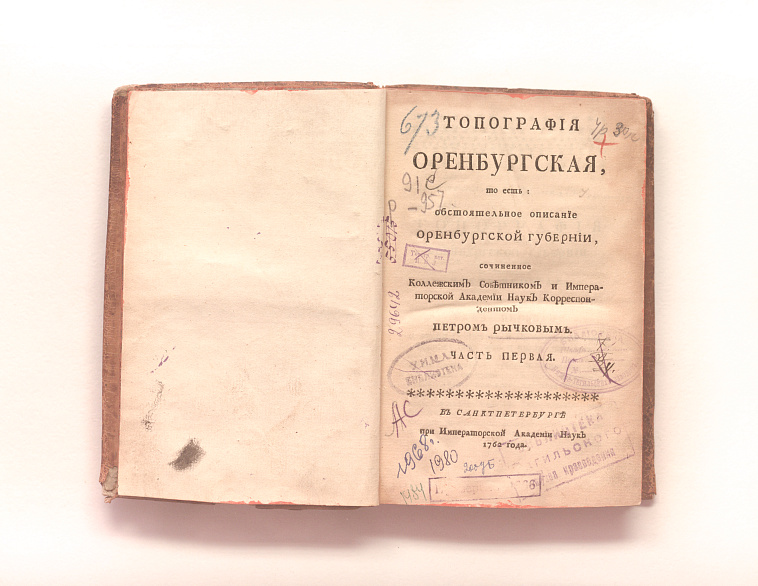 673
ТОПОГРАФІЯ
ОРЕНБУРГСКАЯ,
то есть:
обстоятельное описанїе
ОРЕНБУРГСКОЙ ГУБЕРНІИ,
сочиненное
Коллежскимъ Совѣтникомъ и Импера-
торской Академіи Наукъ Корреспон-
дентомъ
ПЕТРОМЪ РЫЧКОВЫМЪ.
ЧАСТЬ ПЕРВАЯ.
*********************
ВЪ САНКТПЕТЕРБУРГѢ
при Императорской Академіи Наукъ
1762 года.
91С
-957
29642
БИБЛІОТЕКА
АС
1968г.
1980
2007Б
1484
БИБЛИОТЕКА
краеведения